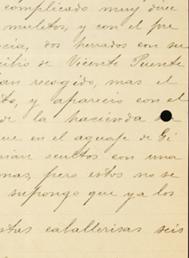 complicado muy dice
muletos, y con el pre
cia, dos herrados con su
cibio de Vicente Puente
ian recogido, mas el
to, y aparecio con el
de la hacienda
ue en el aguaje de Gi
rian ocultos con una
mas, pero estos no se
supongo que ya los
stas caballerisas seis